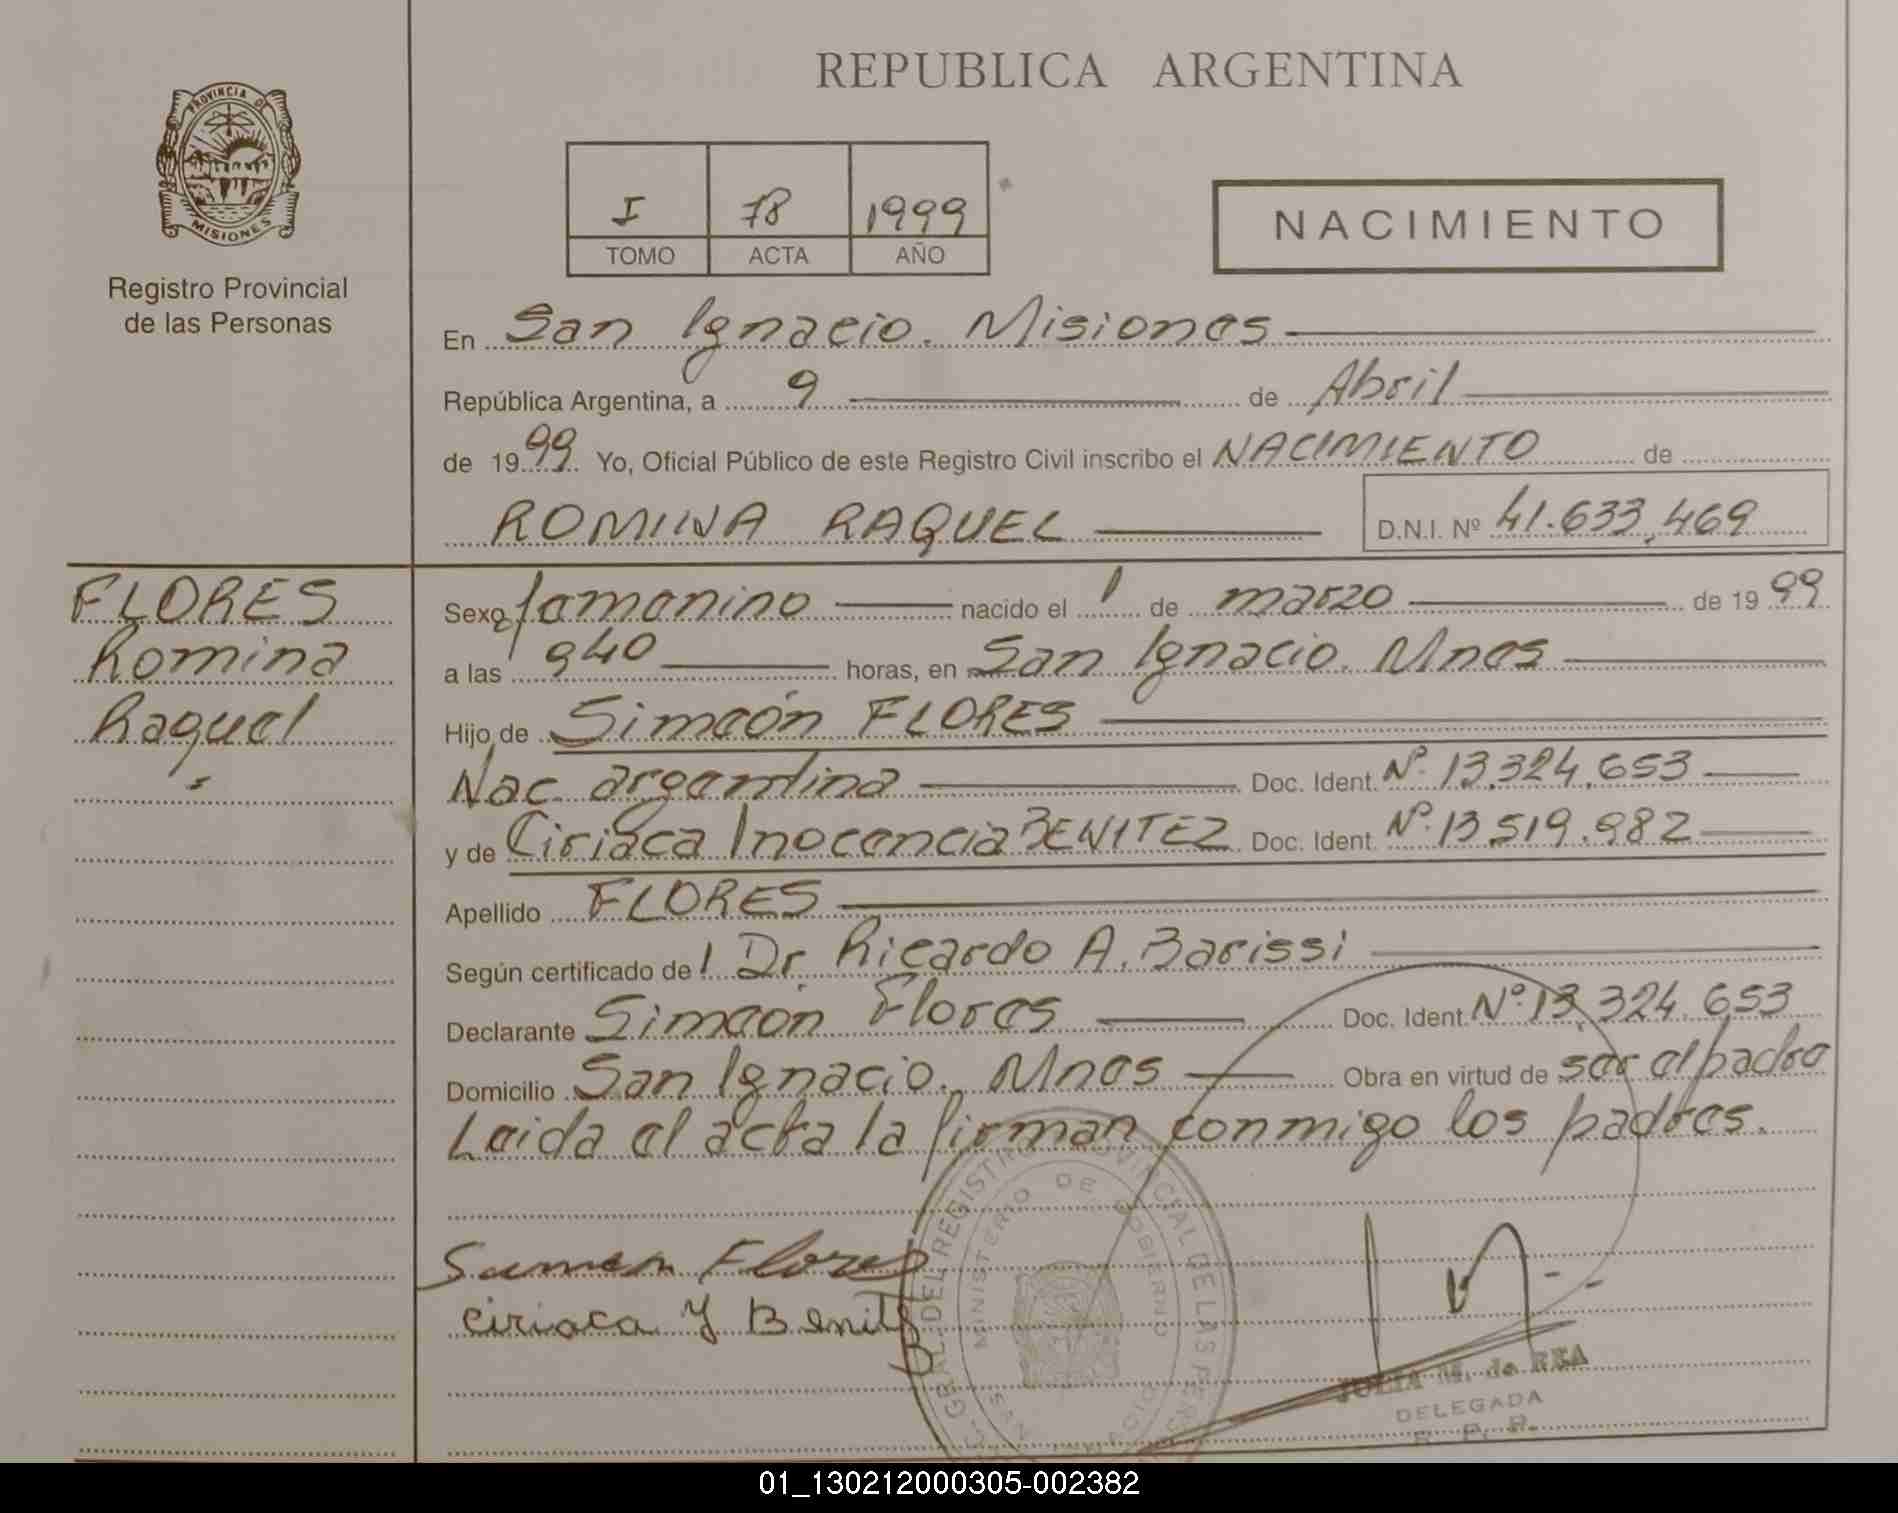 PROVINCIA DE
MISIONES
Registro Provincial
de las Personas
REPUBLICA ARGENTINA
I 78 1999
TOMO ACTA AÑO
NACIMIENTO
En San Ignacio. Misiones
República Argentina, a 9 de Abril
de 1999 Yo, Oficial Público de este Registro Civil inscribo el NACIMIENTO de
ROMINA RAQUEL D.N.I. Nº 41.633.469
FLORES
Romina
Raquel
Sexo femenino nacido el 1 de marzo de 1999
a las 940 horas, en San Ignacio. Mnes
Hijo de Simeón FLORES
Nac. argentina Doc. Ident. Nº. 13.324.653
y de Ciriaca Inocencia BENITEZ Doc. Ident. Nº. 13.519.982
Apellido FLORES
Según certificado de l Dr. Ricardo A. Barissi
Declarante Simeón Flores Doc. Ident. Nº. 13.324.653
Domicilio San Ignacio. Mnes Obra en virtud de ser el padre
Leida el acta la firman conmigo los padres.
GRAL. DEL REGISTRO PROVINCIAL DE LAS PERS
MINISTERIO DE GOBIERNO
SAN IGNACIO
Flores
ciriaca Y Benite
JULIA M. de REA
DELEGADA
R. P. P.
01_130212000305-002382